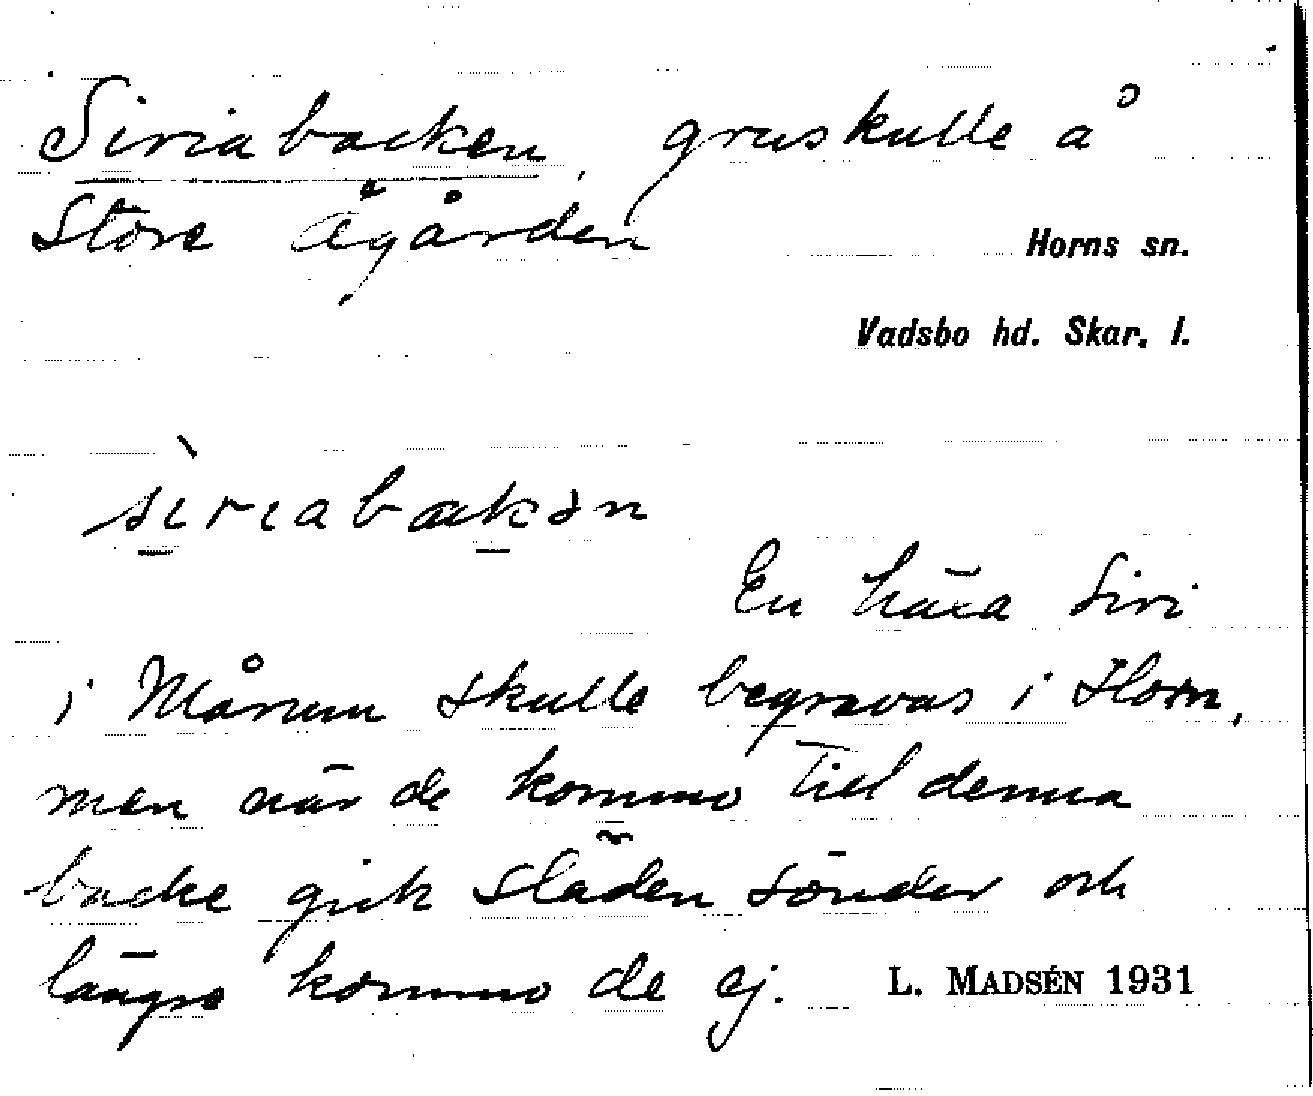 Siriabacken, gruskulle å
Store Ågården
Horns sn.
Vadsbo hd. Skar. l.
sìriabakən
En häxa Siri
i Mårum skulle begravas i Horn,
men när de kommo till denna
backe gick släden sönder och
längre kommo de ej.
L. MADSÉN 1931